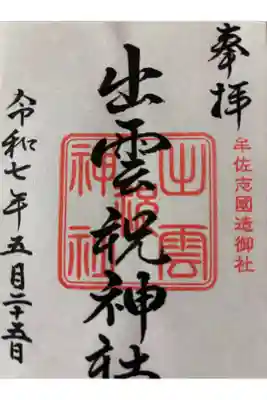 奉拝
牟佐志國造御社
出雲祝神社
出雲祝神社
令和七年五月二十五日